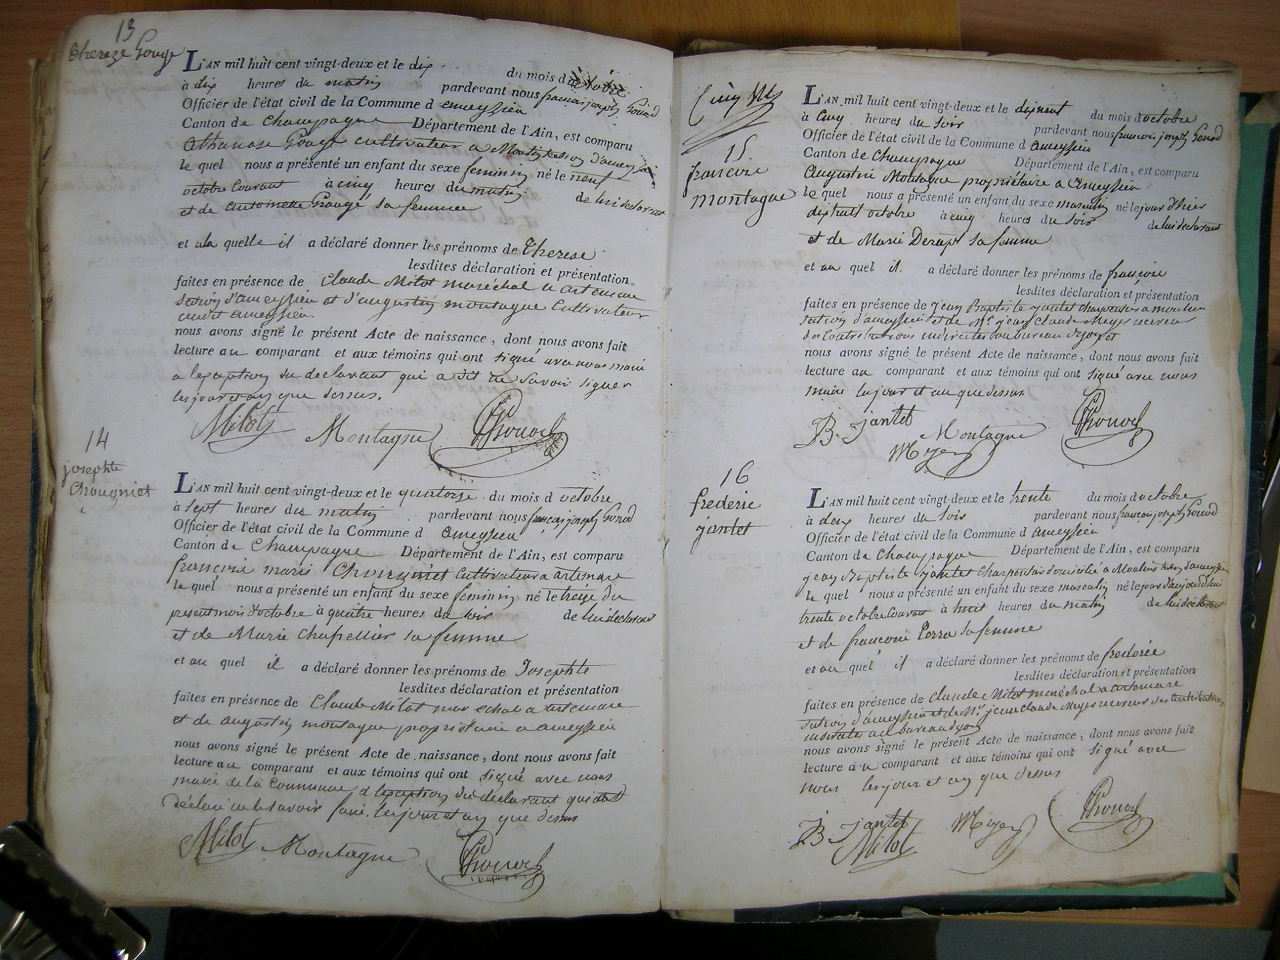 13
Thereze Gougé
L'AN mil huit cent vingt-deux et le dix du mois d'octobre
à dix heures du matin pardevant nous françois joseph Gonod
Officier de l'état civil de la Commune d ameyzieu
Canton de Champagne Département de l'Ain, est comparu
Athanase Gougé cultivateur a
le quel nous a présenté un enfant du sexe feminin né le neuf
octobre Courant à cinq heures du matin de lui declarant
et de antoinette Gougé sa femme
et a la quelle il a déclaré donner les prénoms de Therese
lesdites déclaration et présentation
faites en présence de Claude Milot maréchal a artemare
section d'ameyzieu et d'augustin montagne Cultivateur
audit ameyzieu
nous avons signé le présent Acte de naissance, dont nous avons fait
lecture au comparant et aux témoins qui ont signé avec nous maire
a l'exception du declarant qui a dit ne savoir signer
les jour et an que dessus.
Milot Montagne Gonod
14
josephte
Chougniet
L'AN mil huit cent vingt-deux et le quatorze du mois d octobre
à sept heures du matin pardevant nous françois joseph Gonod
Officier de l'état civil de la Commune d ameyzieu
Canton de Champagne Département de l'Ain, est comparu
françois marie Chougniet Cultivateur a artemare
le quel nous a présenté un enfant du sexe feminin né le treize du
present mois d'octobre à quatre heures du soir de lui declarant
et de Marie Chapellier sa femme
et au quel il a déclaré donner les prénoms de Josephte
lesdites déclaration et présentation
faites en présence de Claude Milot marechal a artemare
et de augustin montagne propriétaire a ameyzieu
nous avons signé le présent Acte de naissance, dont nous avons fait
lecture au comparant et aux témoins qui ont signé avec nous
maire de la Commune a l'exception du declarant qui a
déclaré ne le savoir faire. les jour et an que dessus
Milot Montagne Gonod
15
françois
montagne
L'AN mil huit cent vingt-deux et le dix neuf du mois d octobre
à cinq heures du soir pardevant nous françois joseph Gonod
Officier de l'état civil de la Commune d ameyzieu
Canton de Champagne Département de l'Ain, est comparu
Augustin Montagne propriétaire a ameyzieu
le quel nous a présenté un enfant du sexe masculin né le jour d'hier
dix huit octobre à cinq heures du soir de lui declarant
et de Marie sa femme
et au quel il a déclaré donner les prénoms de françois
lesdites déclaration et présentation
faites en présence de jean Baptiste jantet charpentier a moulin
section d'ameyzieu et de Mr jean Claude Meyer receveur
des Contributions indirectes au bureau d'yon
nous avons signé le présent Acte de naissance, dont nous avons fait
lecture au comparant et aux témoins qui ont signé avec nous
maire les jour et an que dessus
J B. jantet Montagne Gonod
Meyer
16
frederic
jantet
L'AN mil huit cent vingt-deux et le trente du mois d octobre
à deux heures du soir pardevant nous françois joseph Gonod
Officier de l'état civil de la Commune d ameyzieu
Canton de Champagne Département de l'Ain, est comparu
jean Baptiste jantet Charpentier a Moulin section d'ameyzieu
le quel nous a présenté un enfant du sexe masculin né le jour d'aujourd'hui
trente octobre courant à huit heures du matin de lui declarant
et de françoise sa femme
et au quel il a déclaré donner les prénoms de frederic
lesdites déclaration et présentation
faites en présence de Claude Milot maréchal a artemare
section d'ameyzieu et de Mr jean Claude Meyer receveur des Contributions
indirectes au bureau d'yon
nous avons signé le présent Acte de naissance, dont nous avons fait
lecture au comparant et aux témoins qui ont signé avec
nous les jour et an que dessus
J B. jantet Meyer Gonod
Milot